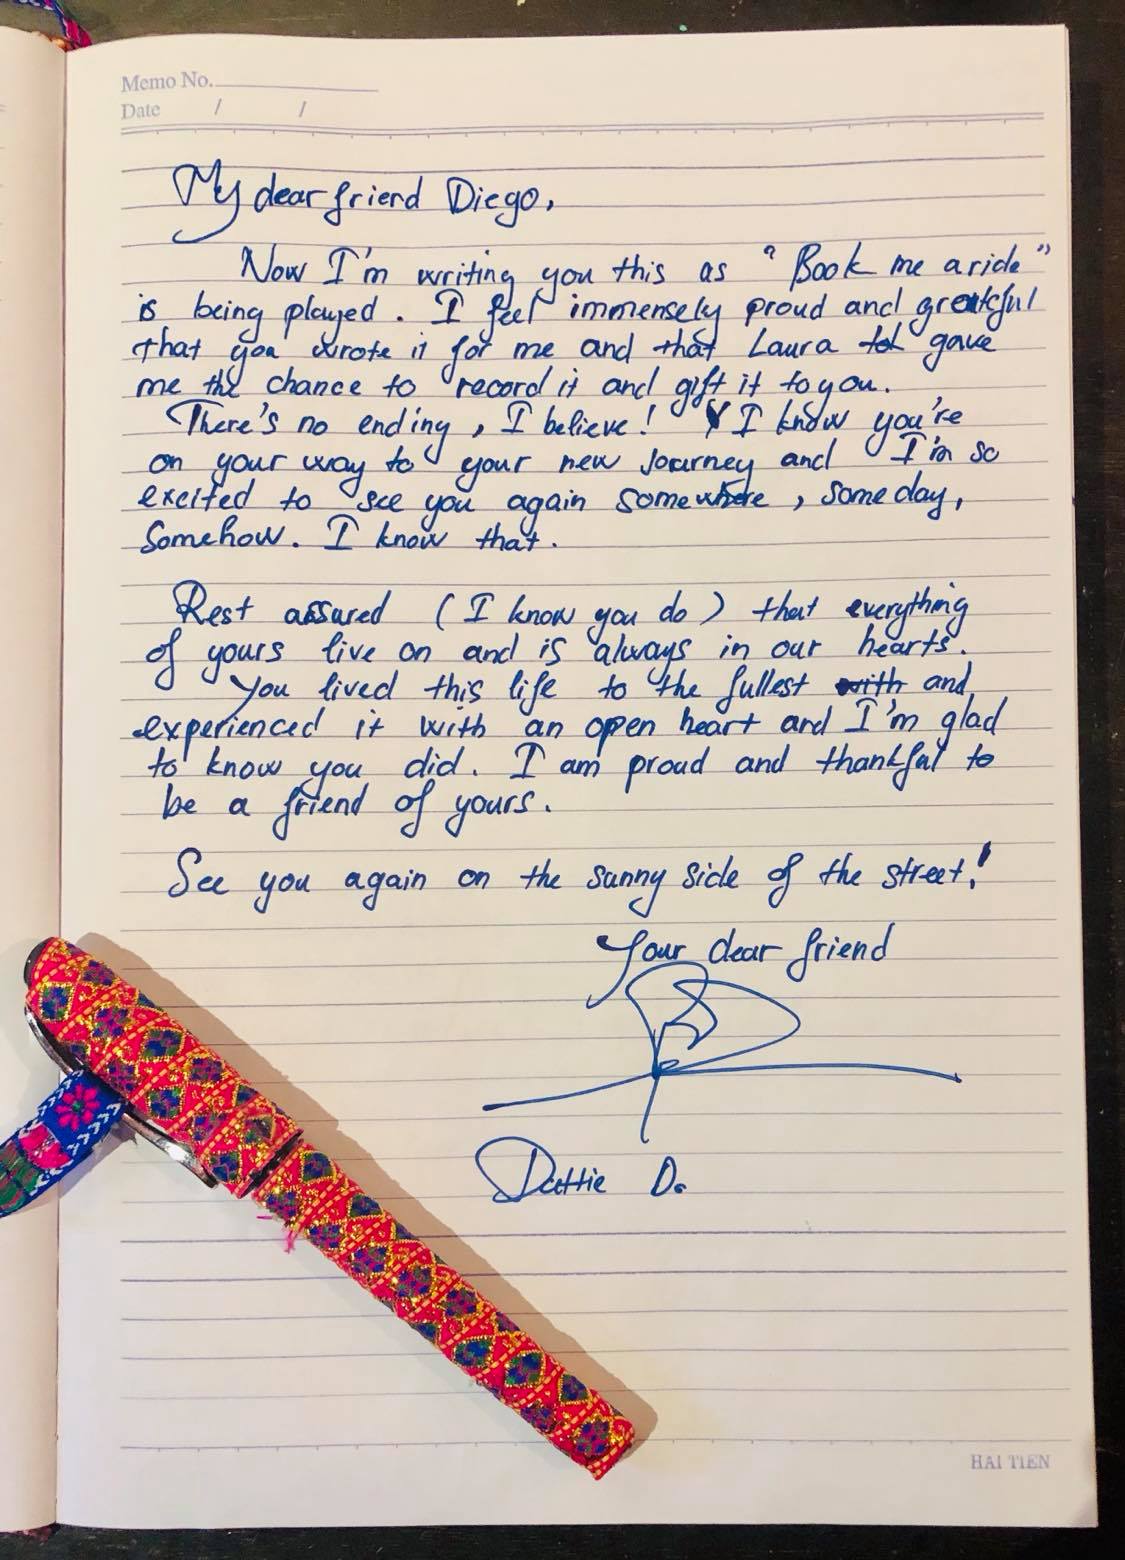 Memo No.
Date / /
My dear friend Diego,
Now I'm writing you this as "Book me a ride"
is being played. I feel immensely proud and grateful
that you wrote it for me and that Laura gave
me the chance to record it and gift it to you.
There's no ending, I believe! I know you're
on your way to your new journey and I'm so
excited to see you again somewhere, someday,
Somehow. I know that.
Rest assured (I know you do) that everything
of yours live on and is always in our hearts.
You lived this life to the fullest with and
experienced it with an open heart and I'm glad
to know you did. I am proud and thankful to
be a friend of yours.
See you again on the sunny side of the street!
Your dear friend
Dattie D.
HAI TIEN